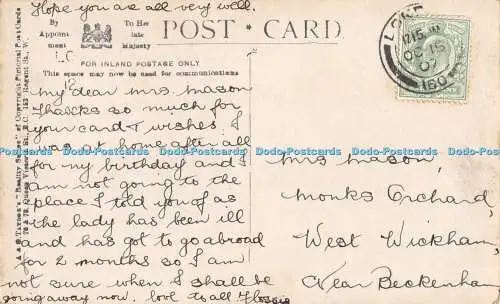 Hope you are all very well.
By Appointment
To His late Majesty
POST CARD
FOR INLAND POSTAGE ONLY
This space may now be used for communications
My dear Mrs Mason
Thanks so much for
your card & wishes. I
was at home after all
for my birthday and I
am not going to the
place I told you of as
the lady has been ill
and has got to go abroad
for 2 months so I am
not sure when I shall be
going away now. love to all Flossie
Mrs Mason,
Monks Orchard,
West Wickham,
Near Beckenham
LONDON
7.15 PM
OC 15
07
160
Dodo-Postcards Dodo-Postcards Dodo-Postcards Dodo-Postcards